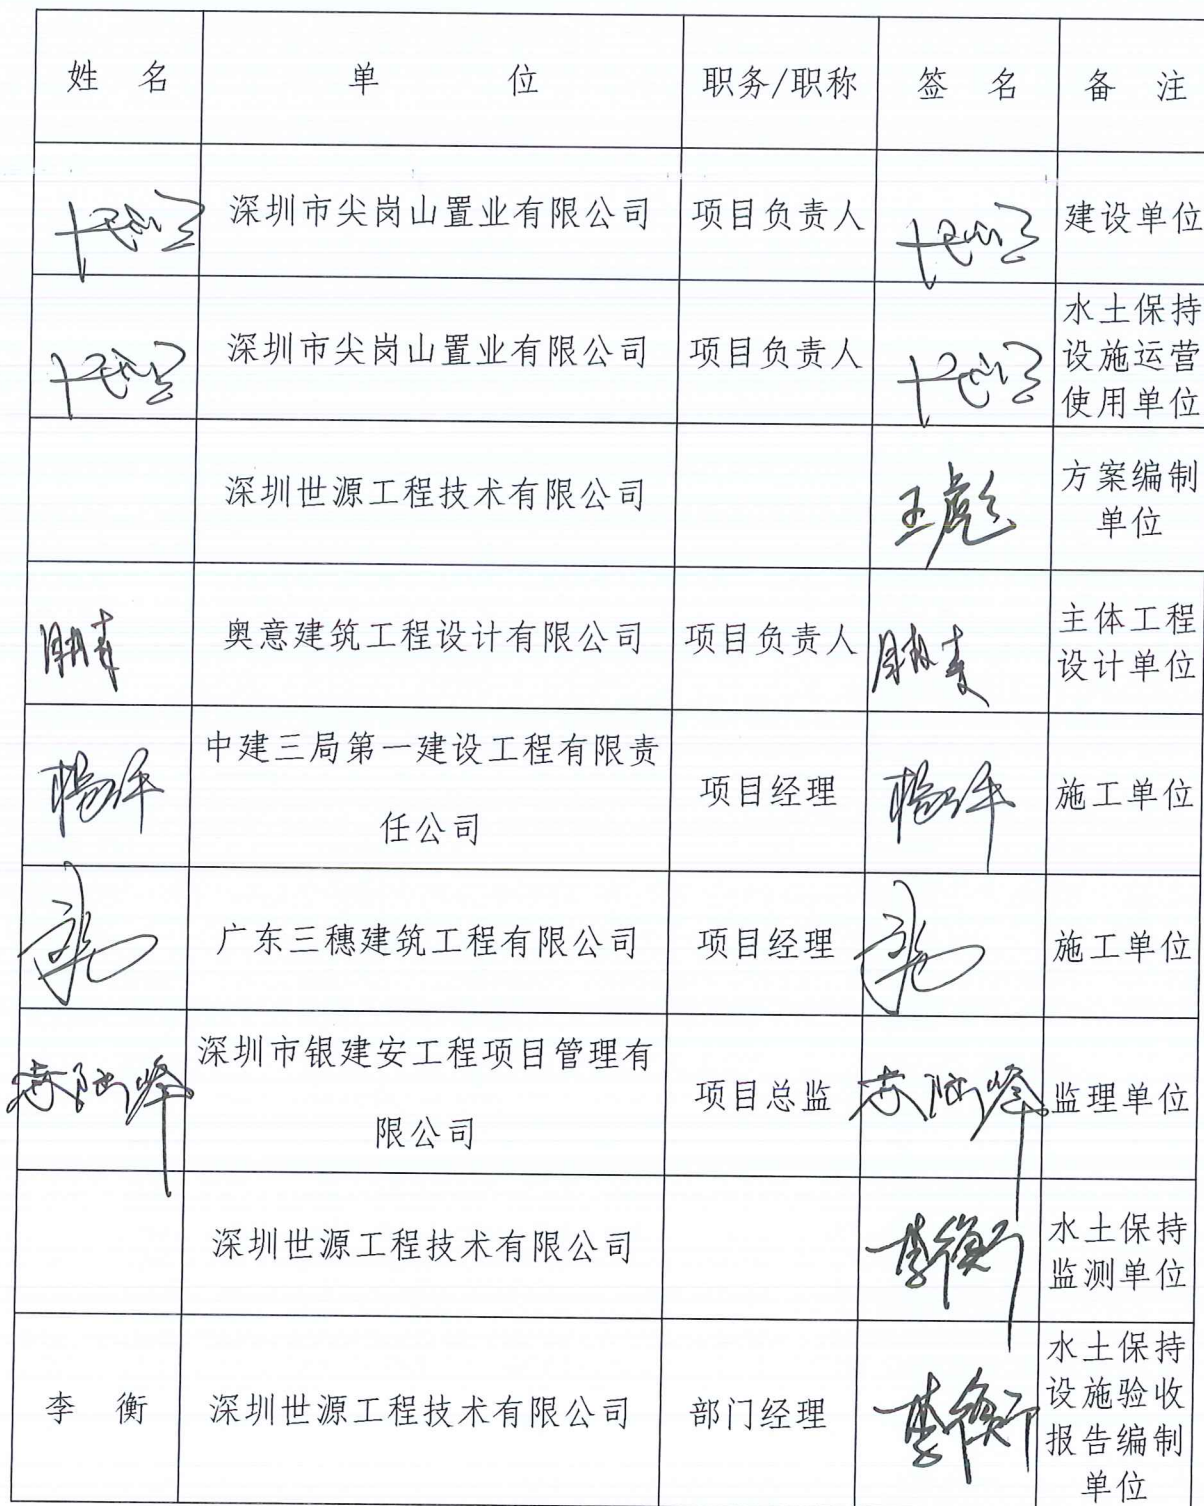 姓 名 单 位 职务/职称 签 名 备 注
深圳市尖岗山置业有限公司 项目负责人 建设单位
深圳市尖岗山置业有限公司 项目负责人 水土保持
设施运营
使用单位
深圳世源工程技术有限公司 王彪 方案编制
单位
奥意建筑工程设计有限公司 项目负责人 主体工程
设计单位
中建三局第一建设工程有限责
任公司 项目经理 施工单位
广东三穗建筑工程有限公司 项目经理 施工单位
深圳市银建安工程项目管理有
限公司 项目总监 监理单位
深圳世源工程技术有限公司 李衡 水土保持
监测单位
李 衡 深圳世源工程技术有限公司 部门经理 李衡 水土保持
设施验收
报告编制
单位